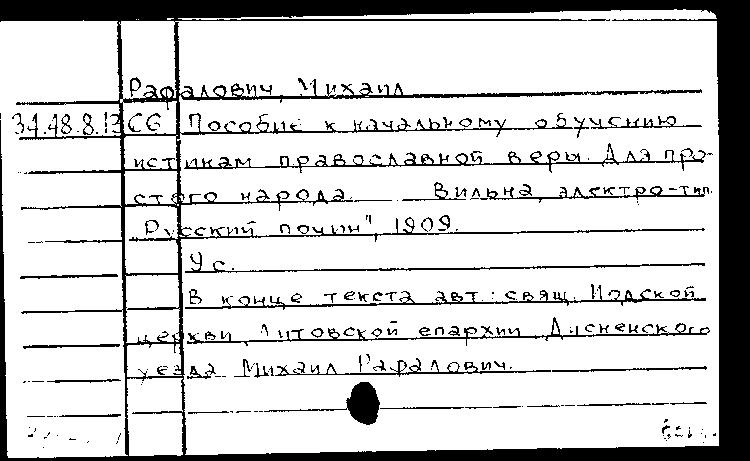 Рафалович, Михаил
34.48.8.13 СБ Пособие к начальному обучению
истинам православной веры. Для про-
стого народа. Вильна, электро-тип.
„Русский почин", 1909.
9 с.
В конце текста авт.: свящ. Иодской
церкви, Литовской епархии, Дисненского
уезда Михаил Рафалович.